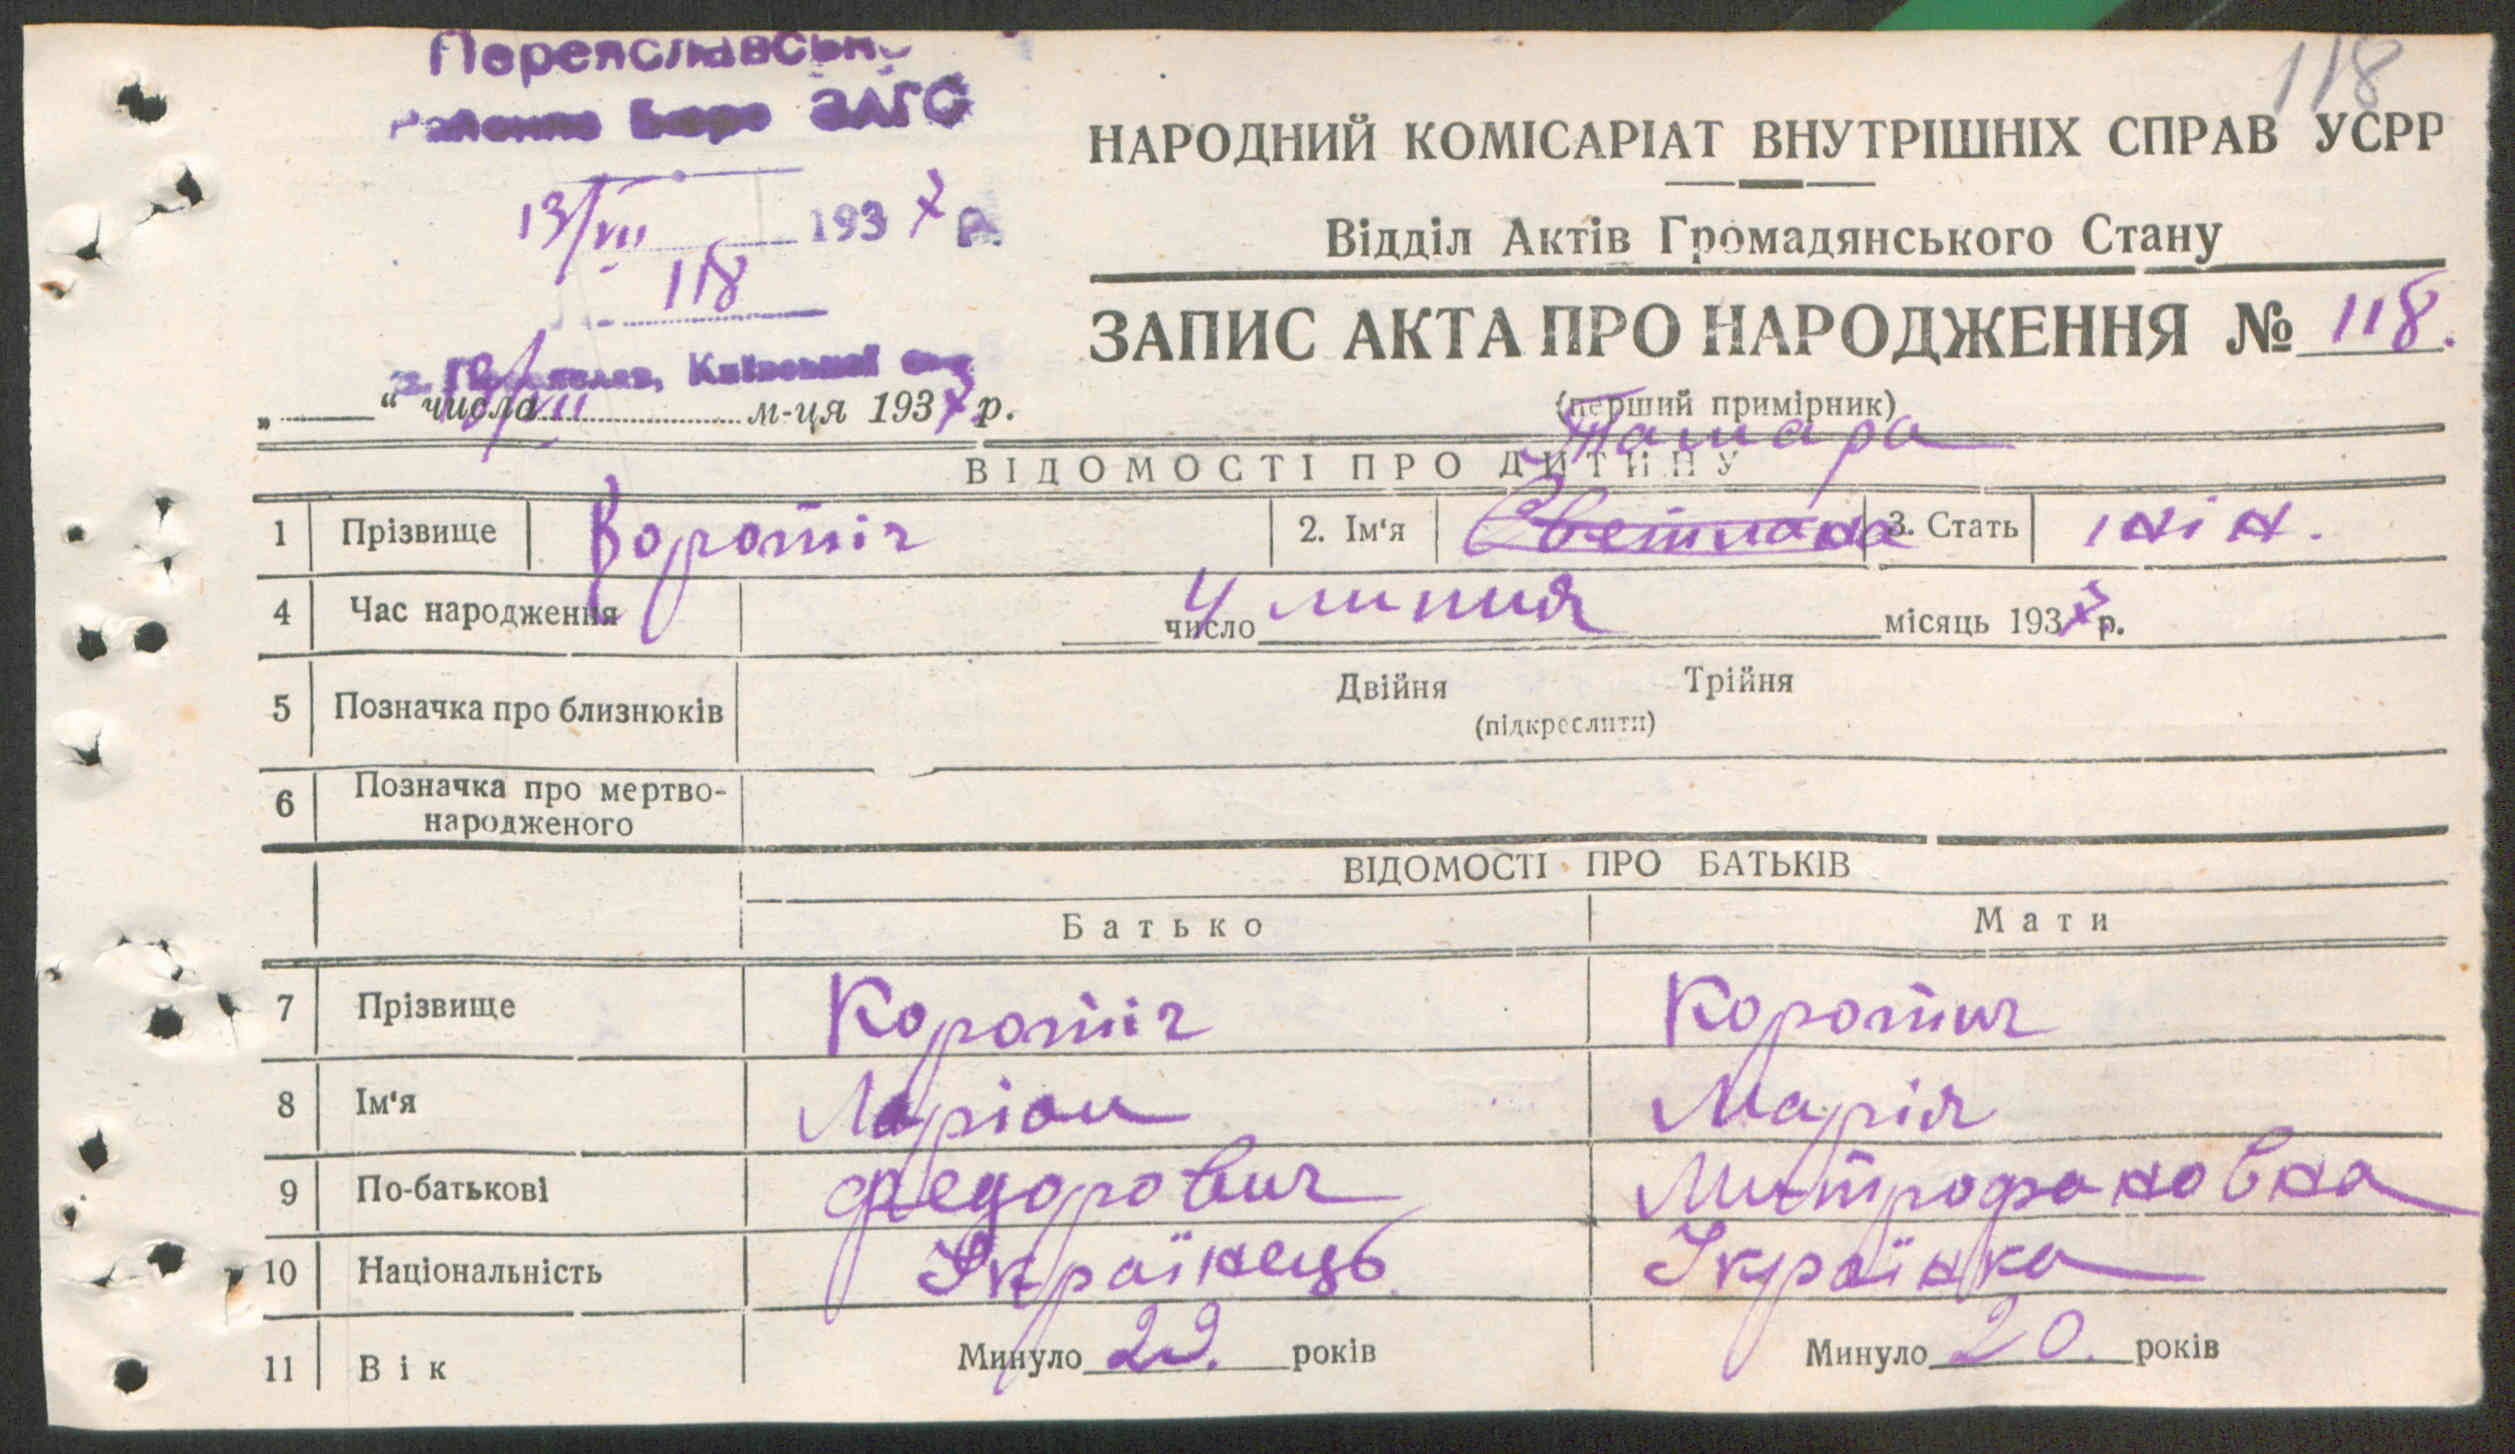 118
Переяславськ
Районне Бюро ЗАГС
13/VII 1937 р.
118
м. Переяслав, Київської обл.
НАРОДНИЙ КОМІСАРІАТ ВНУТРІШНІХ СПРАВ УСРР
Відділ Актів Громадянського Стану
ЗАПИС АКТА ПРО НАРОДЖЕННЯ № 118.
(перший примірник)
„ “ числа 13/VII м-ця 1937 р.
Тамара
ВІДОМОСТІ ПРО ДИТИНУ
1 Прізвище Коротіч 2. Ім‘я Светлана 3. Стать жін.
4 Час народження 4 число липня місяць 1937 р.
5 Позначка про близнюків Двійня Трійня
(підкреслити)
6 Позначка про мертво-
народженого
ВІДОМОСТІ ПРО БАТЬКІВ
Батько Мати
7 Прізвище Коротіч Коротич
8 Ім‘я Ларіон Марія
9 По-батькові Федорович Митрофановна
10 Національність Українець Українка
11 Вік Минуло 29. років Минуло 20. років